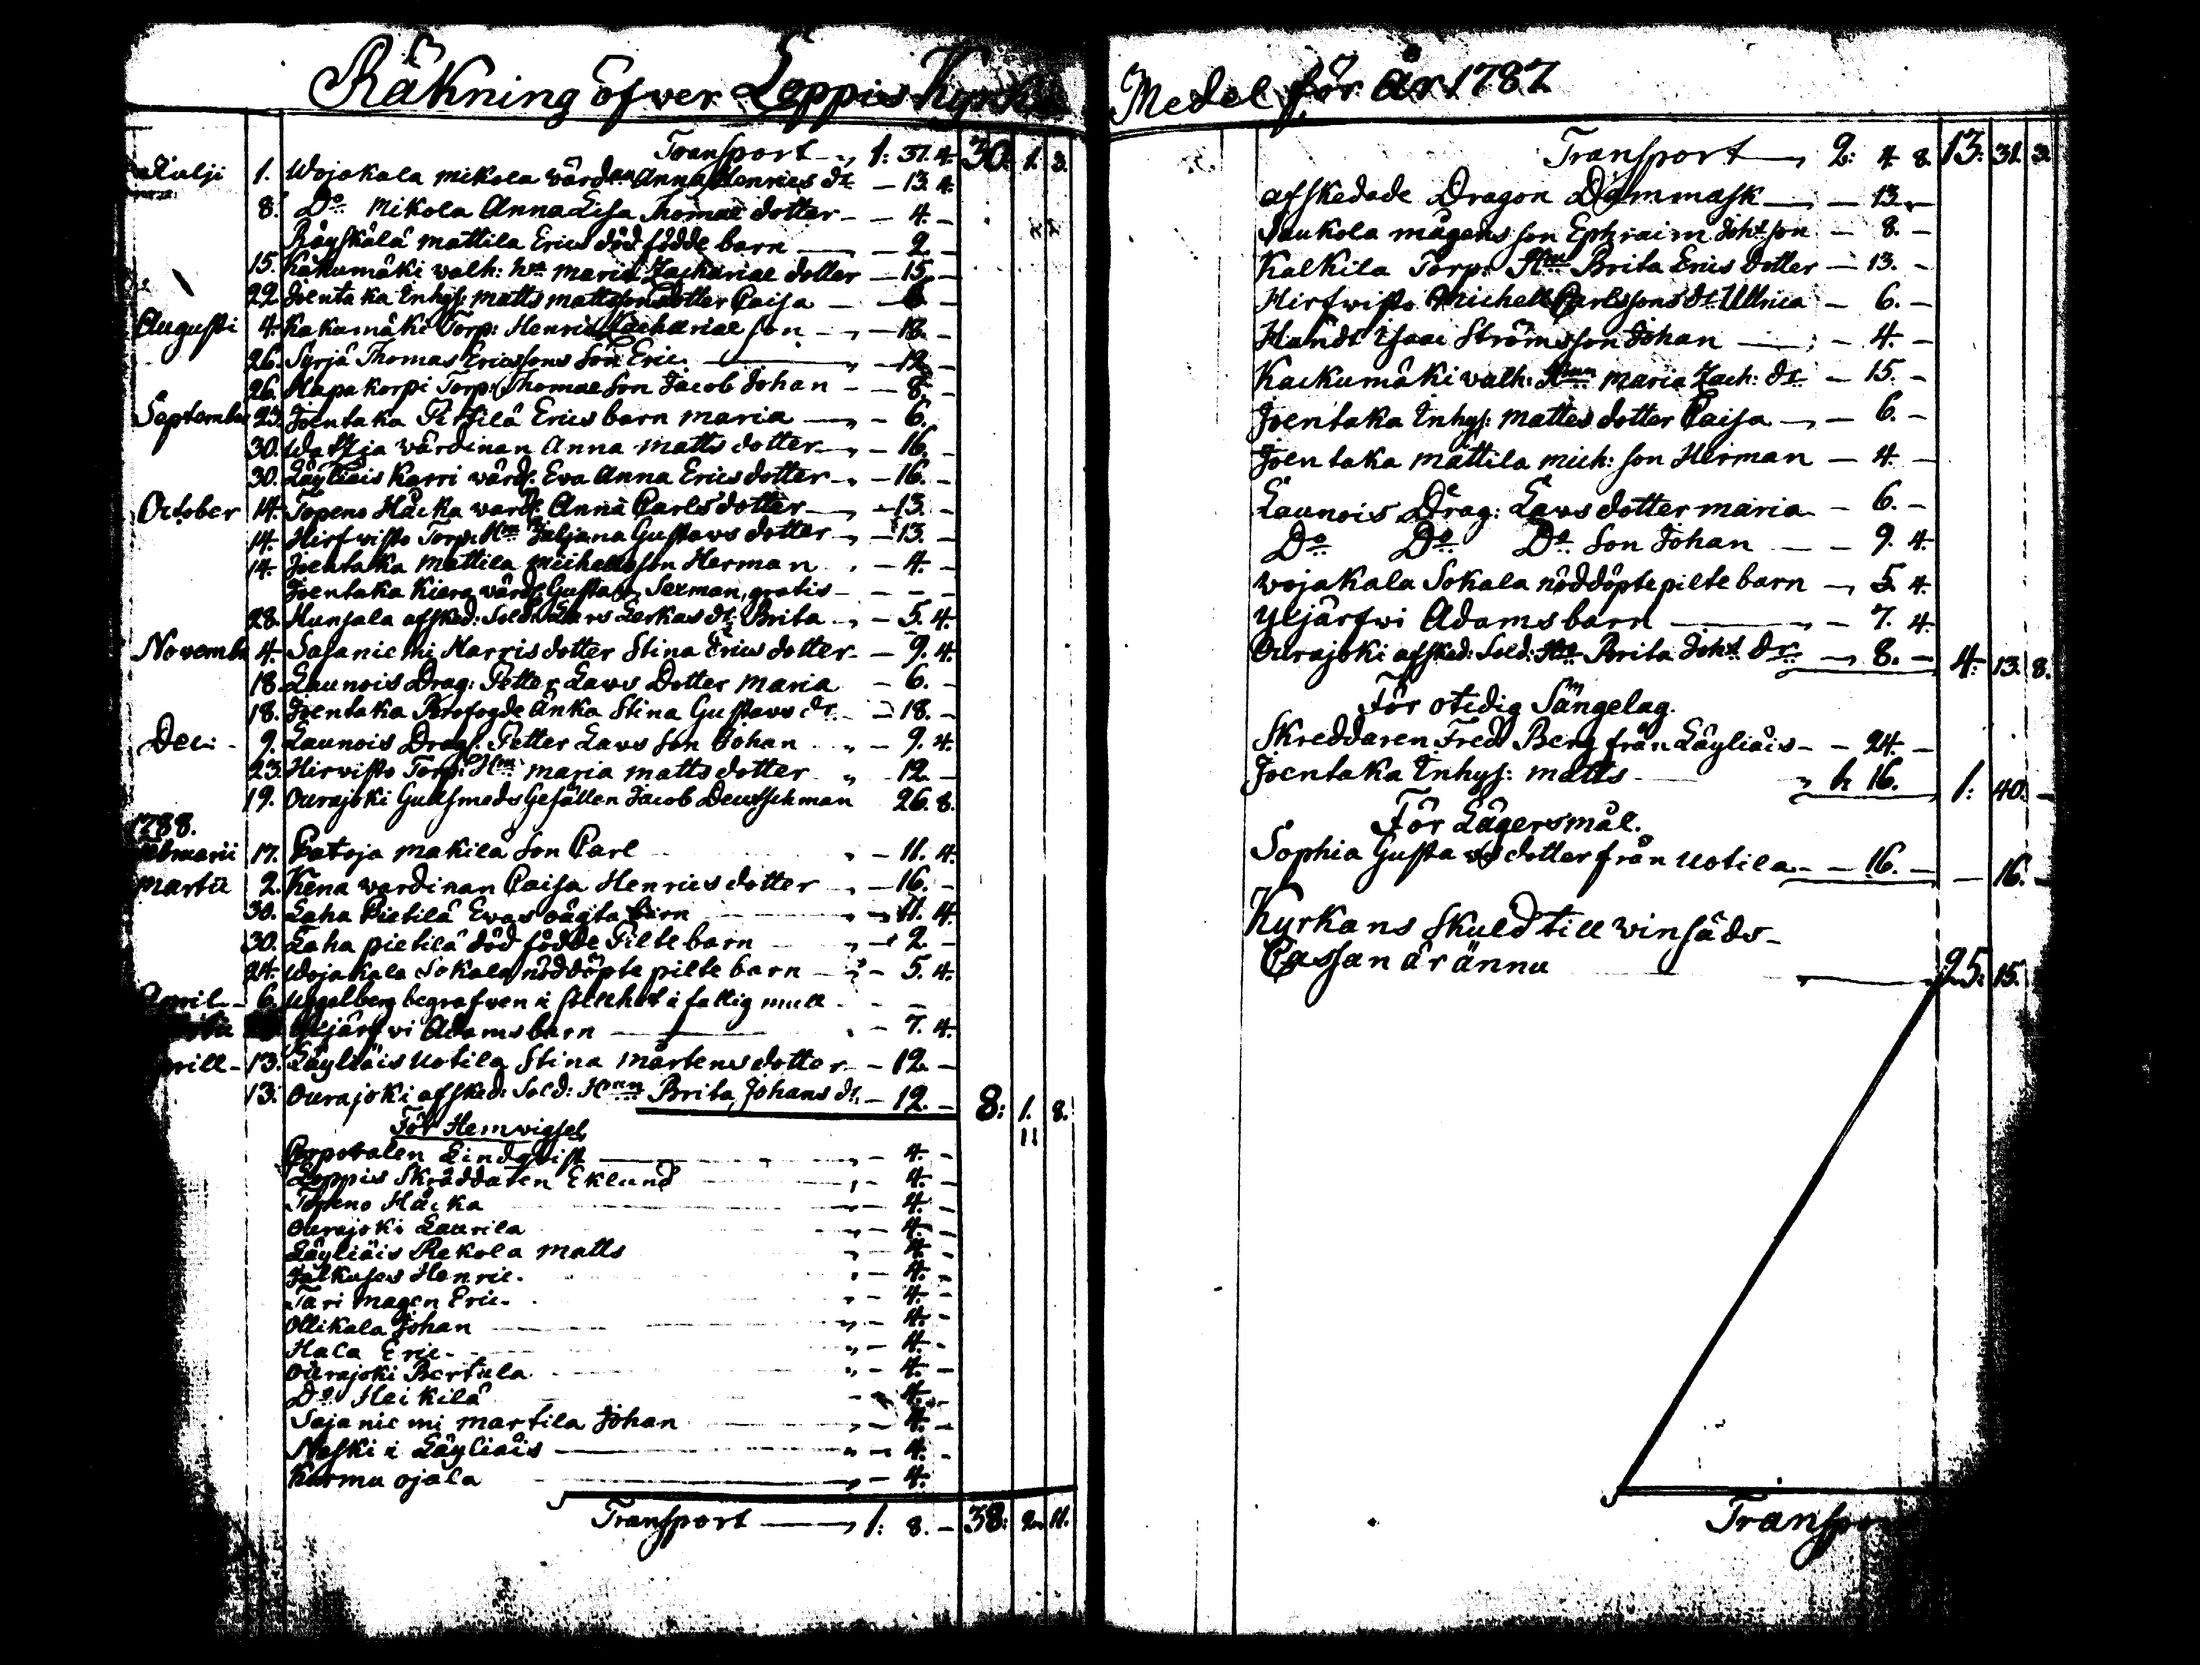 Räkning öfver Loppis Kyrko
Transport 1: 37. 4. 30. 1. 3.
Julji 1. Wojakala Mikola värdan Anna Henrics dr. - 13. 4.
8. Do Mikola Anna Lisa Thomae dotter - 4. -
Räyskälä Mattila Erics död födde barn - 2. -
15. Kakumäki walh: hu maria Zachariae dotter - 15. -
22. Joentaka Inhys: matts mattssons dotter Caisa - 6. -
Augusti 4. Kakumäki Torp: Henric Zachariae son - 18. -
26. Syrjä Thomas Ericssons Son Eric. - 12. -
26. Hapakorpi Torp: Thomae Son Jacob Johan - 8. -
September 23. Joentaka Pietilä Erics barn maria - 6.
30. Watzia värdinan Anna matts dotter - 16. -
30. Läyliäis Karri värd: Eva Anna Erics dotter - 16. -
October 14. Topeno Häcka ward: Anna Carls dotter - 13. -
14. Hirfwisto Torp: Hu Juliana Gustavs dotter - 13. -
14. Joentaka Mattila Michels son Herman - 4. -
Joentaka Kiera värd: Gustav Serman, gratis - - -
28. Hunsala afsked: Sold: Lars Lerkas dr: Brita - 5. 4.
Novembr 4. Sajaniemi Harris dotter Stina Erics dotter - 9. 4.
18. Launois Drag: Petter Lavs Dotter maria - 6. -
18. Joentaka Rofogde Änka Stina Gustavs dr. - 18. -
Dec: 9. Launois Drag: Petter Lavs son Johan - 9. 4.
23. Hirvisto Torp: Hu maria matts dotter 12 -
19. Ourajoki Gulsmeds Gesällen Jacob Deutschman 26. 8.
1788.
Februarii 17. Patoja makilä Son Carl - 11. 4.
Martii 2. Kena vardinan Caisa Henrics dotter - 16. -
30. Laha Pietilä Evas oägta barn - 11. 4.
30. Laha pietilä död födde Pilte barn - 2 -
24. Wojakala Sokala nöddöpte pilte barn - 5. 4.
April - 6. Uggelberg begrafven i stillhet i fattig mull - -
Yljärfwi Adams barn - 7. 4.
prill - 13. Läyliäis Uotila Stina Mårtens dotter - 12. -
13. Ourajoki afsked: Sold: Hun Brita Johans dr. - 12. - 8: 1. 8.
11
För Hemvigsel
Corporalen Lindqvist - 4. -
Loppis Skräddaren Eklund - 4. -
Topeno Häcka - 4. -
Ourajoki Laurila - 4. -
Läyliäis Rekola Matts - 4. -
Jälkuses Henric. - 4. -
Tari magen Eric. - 4. -
Ollikala Johan - 4. -
Haca Eric. - 4. -
Ourajoki Bertula - 4. -
Do Heikilä - 4. -
Sajaniemi Martila Johan - 4. -
Neski i Läyliäis - 4. -
Karmu ojala - 4.
Transport 1: 8. - 38: 2. 11.
Medel för år 1787
Transport 2: 4. 8. 13. 31. 3.
afskedade Dragon Dammask - 13. -
Saukola mågens son Ephraim Johs son - 8. -
Kalkila Torp: Hu Brita Erics dotter - 13. -
Hirfwisto Michell Carlssons dr. Ullrica - 6. -
Hundt Isaac Ströms son Johan - 4. -
Kackumäki walh: Hun maria Zach: dr. - 15. -
Joentaka Inhys: Mattes dotter Caisa - 6. -
Joentaka Mattila mich: son Herman - 4. -
Launois Drag: Lavs dotter maria - 6. -
Do Do Do Son Johan - 9. 4.
Wojakala Sokala nöddöpte pilte barn - 5. 4.
Yljärfwi Adams barn - 7. 4.
Ourajoki afsked: Sold: Hu Brita Johs Dr. - 8. - 4. 13. 8.
För otidig Sängelag.
Skreddaren Fred Berg från Läyliäis - 24. -
Joentaka Inhys: matts 16. 1: 40. -
För Lägersmål.
Sophia Gustavs dotter från Uotila - 16. - - 16. -
Kyrkans Skuld till vinsäds-
Cassan är ännu 25: 15.
Transpor